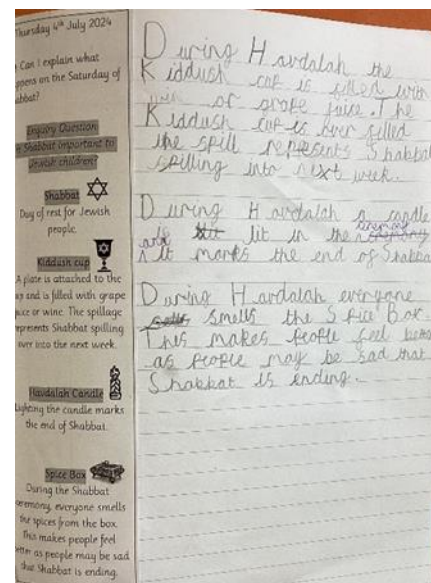 Thursday 4th July 2024
Can I explain what
on the Saturday of
Enquiry Question
Shabbat important to
Jewish children?
Shabbat
Day of rest for Jewish
people.
Kiddush cup
A plate is attached to the
and is filled with grape
juice or wine. The spillage
represents Shabbat spilling
over into the next week.
Havdalah Candle
Lighting the candle marks
the end of Shabbat.
Spice Box
During the Shabbat
ceremony, everyone smells
the spices from the box.
This makes people feel
better as people may be sad
that Shabbat is ending.
During Havdalah the
Kiddush cup is filled with
or grape juice. The
Kiddush cup is over filled
the spill represents Shabbat
spilling into next week.
During Havdalah a candle
is lit in the
and It marks the end of Shabba
During Havdalah everyone
smells the Spice Box.
This makes people feel
as people may be sad that
Shabbat is ending.